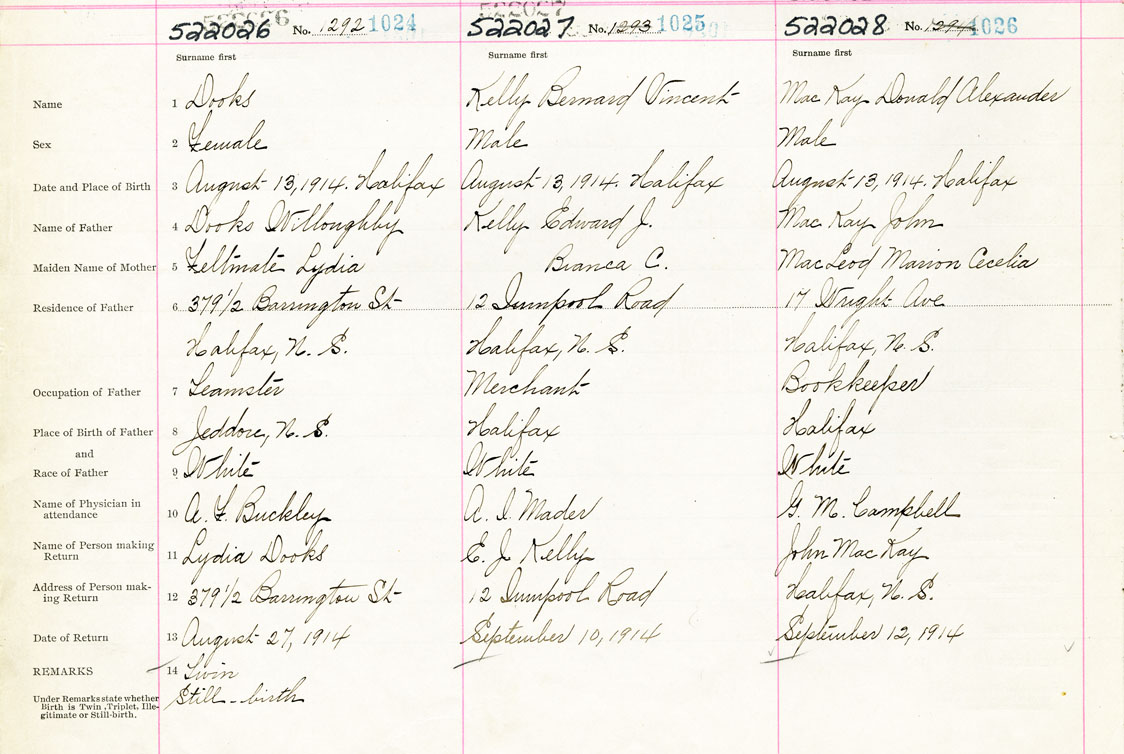 522026 No. 1292 1024 522027 No. 1293 1025 522028 No. 1294 1026
Surname first Surname first Surname first
Name 1 Dooks Kelly Bernard Vincent Mac Kay Donald Alexander
Sex 2 Female Male Male
Date and Place of Birth 3 August 13, 1914. Halifax August 13, 1914. Halifax August 13, 1914. Halifax
Name of Father 4 Dooks Willoughby Kelly Edward J. Mac Kay John
Maiden Name of Mother 5 Lydia Bianca C. MacLeod Marion Cecelia
Residence of Father 6 379 1/2 Barrington St 12 Road 17 Wright Ave
Halifax, N. S. Halifax, N. S. Halifax, N. S.
Occupation of Father 7 Teamster Merchant Bookkeeper
Place of Birth of Father 8 Jeddore, N. S. Halifax Halifax
and
Race of Father 9 White White White
Name of Physician in
attendance 10 A. F. Buckley A. I. Mader G. M. Campbell
Name of Person making
Return 11 Lydia Dooks E. J. Kelly John Mac Kay
Address of Person mak-
ing Return 12 379 1/2 Barrington St 12 Road Halifax, N. S.
Date of Return 13 August 27, 1914 September 10, 1914 September 12, 1914
REMARKS 14 Twin
Under Remarks state whether
Birth is Twin, Triplet, Ille-
gitimate or Still-birth.
Still-birth